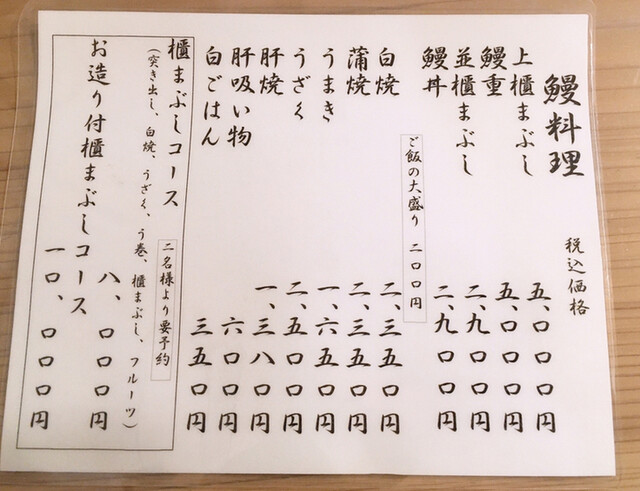 鰻料理
税込価格
上櫃まぶし 五、〇〇〇円
鰻重 五、〇〇〇円
並櫃まぶし 二、九〇〇円
鰻丼 二、九〇〇円
ご飯の大盛り 二〇〇円
白焼 二、三五〇円
蒲焼 二、三五〇円
うまき 一、六五〇円
うざく 二、五〇〇円
肝焼 一、三八〇円
肝吸い物 六〇〇円
白ごはん 三五〇円
櫃まぶしコース
二名様より要予約
(突き出し、白焼、うざく、う巻、櫃まぶし、フルーツ)
八、〇〇〇円
お造り付櫃まぶしコース
一〇、〇〇〇円